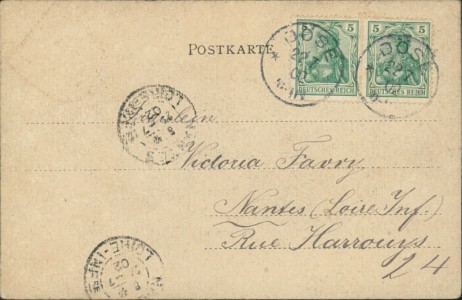 POSTKARTE
5
5
DEUTSCHES REICH
DEUTSCHES REICH
DÖSE
DÖSE
Fräulein
Victoria Favry
Nantes (Loire Inf.)
Rue Harrouys
24
LOIRE-INF